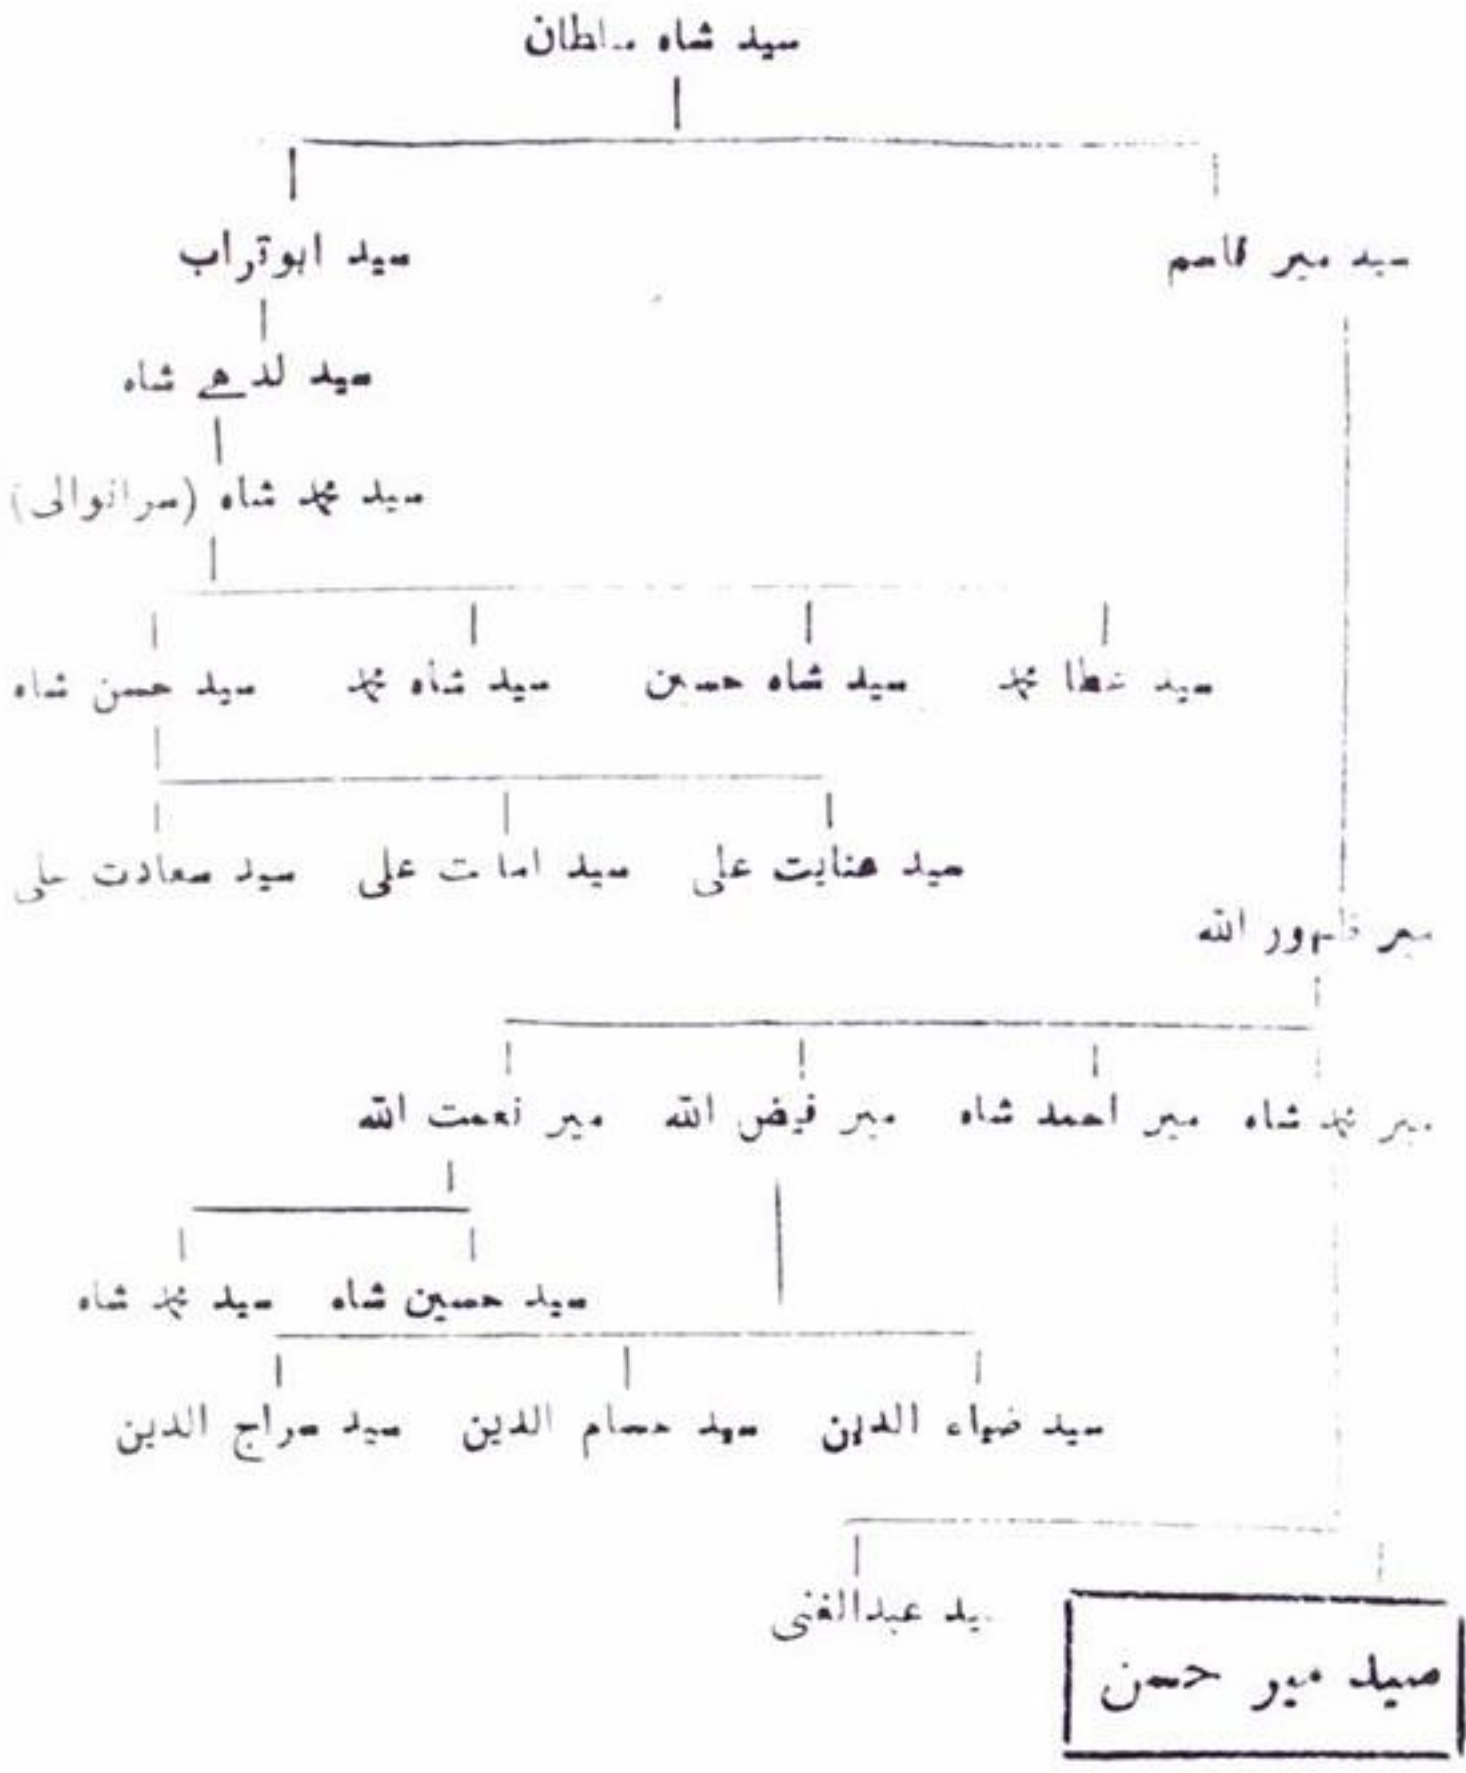 سید شاہ سلطان
سید میر قاسم
سید ابوتراب
سید لدھے شاہ
سید محمد شاہ (سرانوالی)
سید عطا محمد
سید شاہ حسین
سید شاہ محمد
سید حسن شاہ
سید عنایت علی
سید امانت علی
سید سعادت علی
میر ظہور اللہ
میر محمد شاہ
میر احمد شاہ
میر فیض اللہ
میر نعمت اللہ
سید حسین شاہ
سید محمد شاہ
سید ضیاء الدین
سید حسام الدین
سید سراج الدین
سید عبدالغنی
سید میر حسن